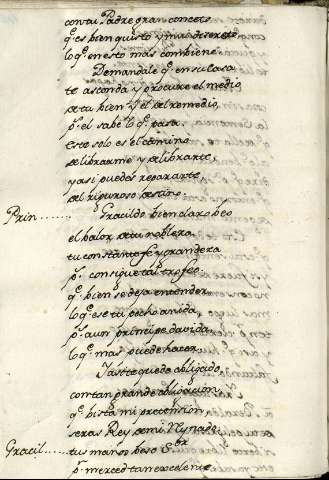 con tu Padre gran conceto
q̃ es bien quisto y muy discreto
lo q̃ en esto mas combiene.
Demandale q̃ en su casa
te asconda y procure el medio
de tu bien y el del remedio,
p.s el sabe lo q̃ pasa.
Este solo es el camino
de librarme y de librarte,
y asi puedes repararte
del riguroso destino.
Prin....... Gracildo bien claro beo
el balor de tu nobleza
tu constante fe y grandeza
p.s consigue tal trofeo.
q̃ bien se deja entender
lo q̃ ese tu pecho anida,
p.s aun prinçipe da vida
lo q̃ mas puede hacer.
Ya te quedo obligado
con tan grande obligaçion,
q̃ bista mi pretension,
seras Rey de mi Reynado.
Gracil....... tus manos beso S.or
p.r merced tan excelente